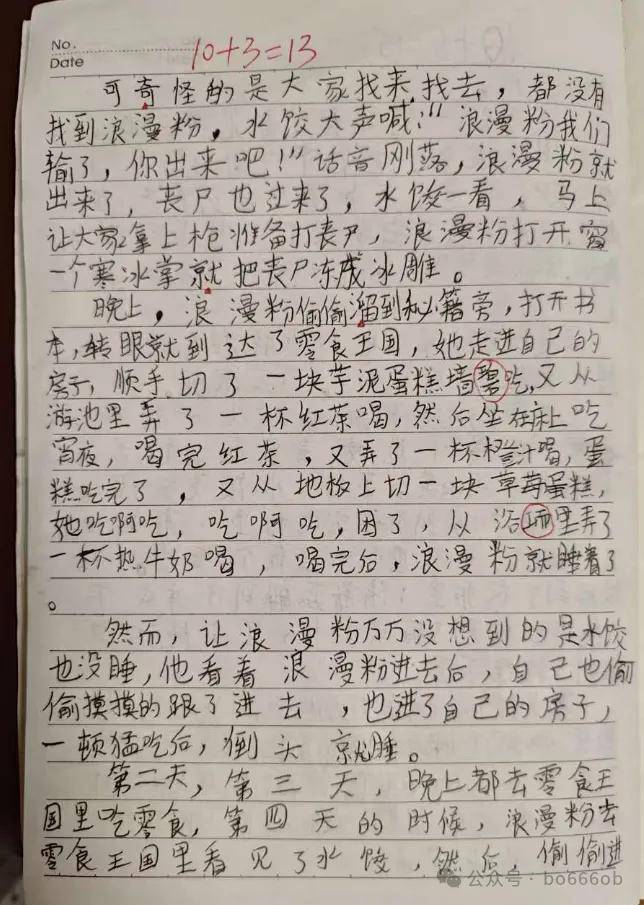 No.
Date
10+3=13
可奇怪的是大家找来找去，都没有
找到浪漫粉，水饺大声喊：“浪漫粉我们
输了，你出来吧！”话音刚落，浪漫粉就
出来了，丧尸也过来了，水饺一看，马上
让大家拿上枪准备打丧尸，浪漫粉打开窗
一个寒冰掌就把丧尸冻成冰雕。
晚上，浪漫粉偷偷溜到秘籍旁，打开书
本，转眼就到达了零食王国，她走进自己的
房子，顺手切了一块芋泥蛋糕墙碧吃，又从
游池里弄了一杯红茶喝，然后坐在床上吃
宵夜，喝完红茶，又弄了一杯橙汁喝，蛋
糕吃完了，又从地板上切一块草莓蛋糕，
她吃啊吃，吃啊吃，困了，从浴里弄了
一杯热牛奶喝，喝完后，浪漫粉就睡着了
。
然而，让浪漫粉万万没想到的是水饺
也没睡，他看着浪漫粉进去后，自己也偷
偷摸摸的跟了进去，也进了自己的房子，
一顿猛吃后，倒头就睡。
第二天，第三天，晚上都去零食王
国里吃零食，第四天的时候，浪漫粉去
零食王国里看见了水饺，然后，偷偷进
公众号·bo666ob